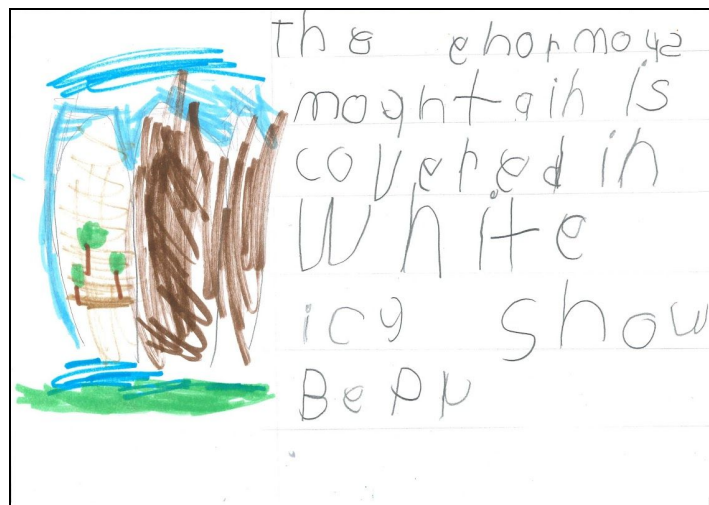 The enormous
mountain is
covered in
White
icy snow
Benn